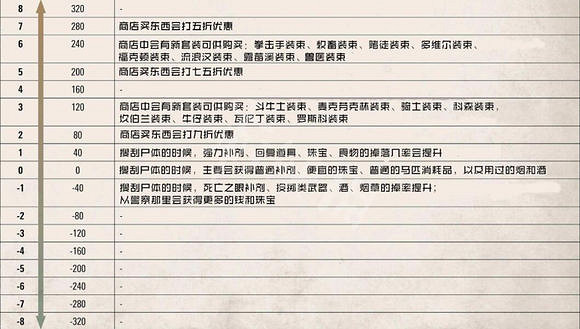 8 320 -
7 280 商店买东西会打五折优惠
6 240 商店中会有新套装可供购买：拳击手装束、牧畜装束、赌徒装束、多维尔装束、
福克顿装束、流浪汉装束、露茜溪装束、兽医装束
5 200 商店买东西会打七五折优惠
4 160 -
3 120 商店中会有新套装可供购买：斗牛士装束、麦克劳克林装束、骑士装束、科森装束、
坎伯兰装束、牛仔装束、瓦伦丁装束、罗斯科装束
2 80 商店买东西会打九折优惠
1 40 搜刮尸体的时候，强力补剂、回复道具、珠宝、食物的掉落几率会提升
0 0 搜刮尸体的时候，主要会获得普通补剂、便宜的珠宝、普通的马匹消耗品，以及用过的烟和酒
-1 -40 搜刮尸体的时候，死亡之眼补剂、投掷类武器、酒、烟草的掉落率提升；
从警察那里会获得更多的钱和珠宝
-2 -80 -
-3 -120 -
-4 -160 -
-5 -200 -
-6 -240 -
-7 -280 -
-8 -320 -